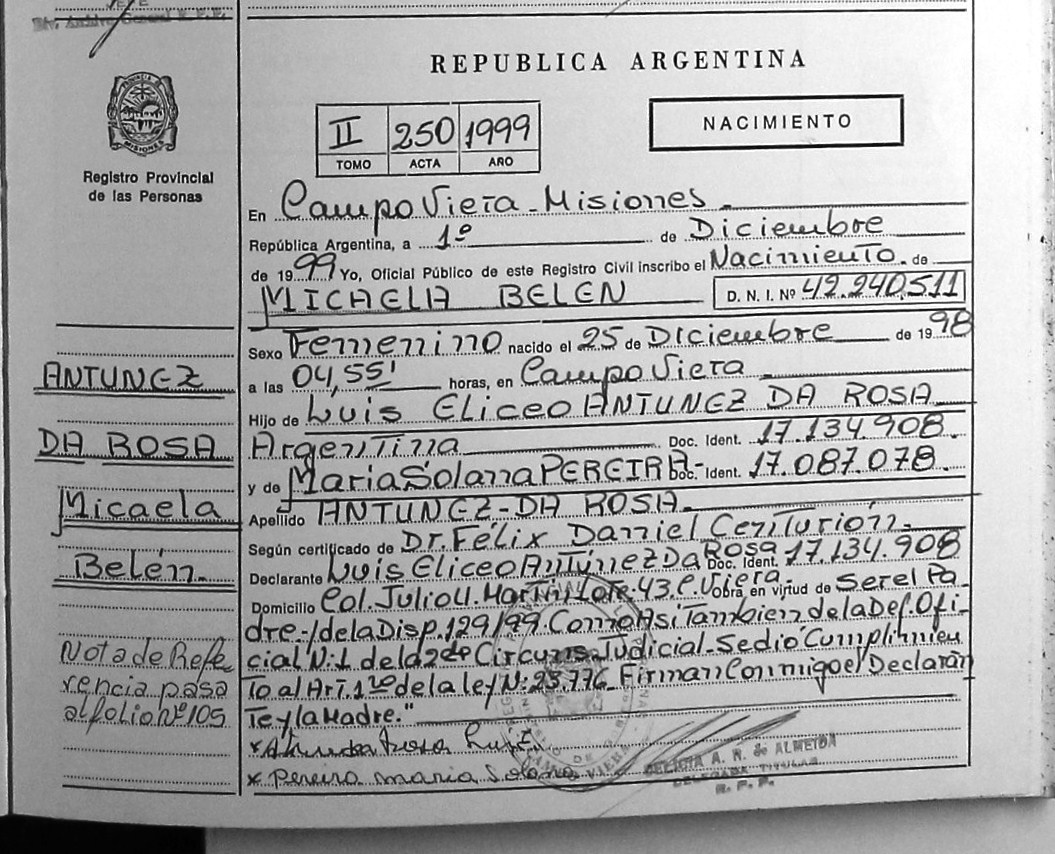 Div. Archivo General R.P.P.
REPUBLICA ARGENTINA
II 250 1999
TOMO ACTA AÑO
NACIMIENTO
PROVINCIA DE MISIONES
Registro Provincial
de las Personas
En Campo Viera - Misiones
República Argentina, a 1º de Diciembre
de 1999 Yo, Oficial Público de este Registro Civil inscribo el Nacimiento. de
MICAELA BELEN D. N. I. Nº 42.240.511
Sexo Femenino nacido el 25 de Diciembre de 1998
a las 04,55' horas, en Campo Viera
Hijo de Luis Eliceo ANTUNEZ DA ROSA
Argentina Doc. Ident. 17.134.908.
y de Maria Solana PEREIRA- Doc. Ident. 17.087.078.
Apellido ANTUNEZ-DA ROSA-
Según certificado de Dr. Félix Daniel Centurión-
Declarante Luis Eliceo Antunez Da Rosa Doc. Ident. 17.134.908
Domicilio Col. Julio U. Martin Lote: 43. C. Viera- obra en virtud de Ser el Pa-
dre.-/ de la Disp. 129/99. Como Asi Tambien de la Def. Ofi-
cial N: 1 de la 2da Circuns. Judicial- Se dió Cumplimien
To al Art. 1ro de la ley N: 23.776. Firman Conmigo el Declaran
Te y la Madre."
x Pereira maria Solana
DELICIA A. R. de ALMEIDA
DELEGADA TITULAR
R. P. P.
ANTUNEZ
DA ROSA
Micaela
Belén.
Nota de Refe
rencia pasa
al folio Nº 105